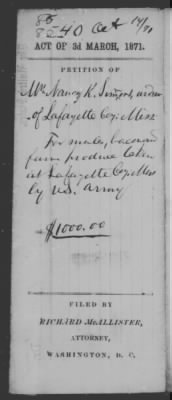 8540 Oct 14/71
ACT OF 3d MARCH, 1871.
PETITION OF
Mrs Nancy K. Simpson, widow
of Lafayette Co., Miss
For mules, bacon and
farm produce taken
in Lafayette Co., Miss
by U.S. Army
$1000.00
FILED BY
RICHARD McALLISTER,
ATTORNEY,
WASHINGTON, D. C.